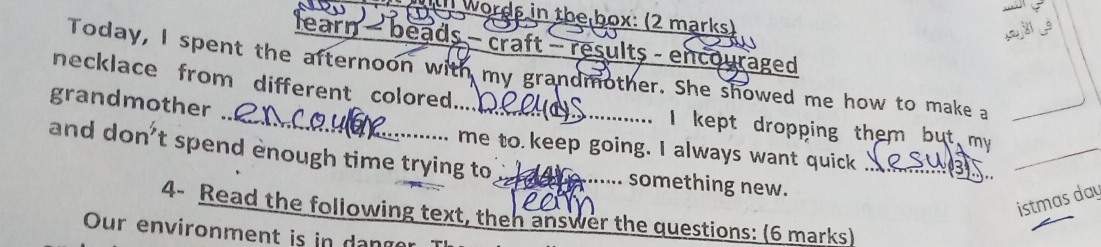 words in the box: (2 marks)
learn – beads – craft – results - encouraged
Today, I spent the afternoon with my grandmother. She showed me how to make a
necklace from different colored....beads............ I kept dropping them but my
grandmother ........................ me to keep going. I always want quick ...results...
and don't spend enough time trying to ...learn...... something new.
4- Read the following text, then answer the questions: (6 marks)
Our environment is in danger.
istmas day